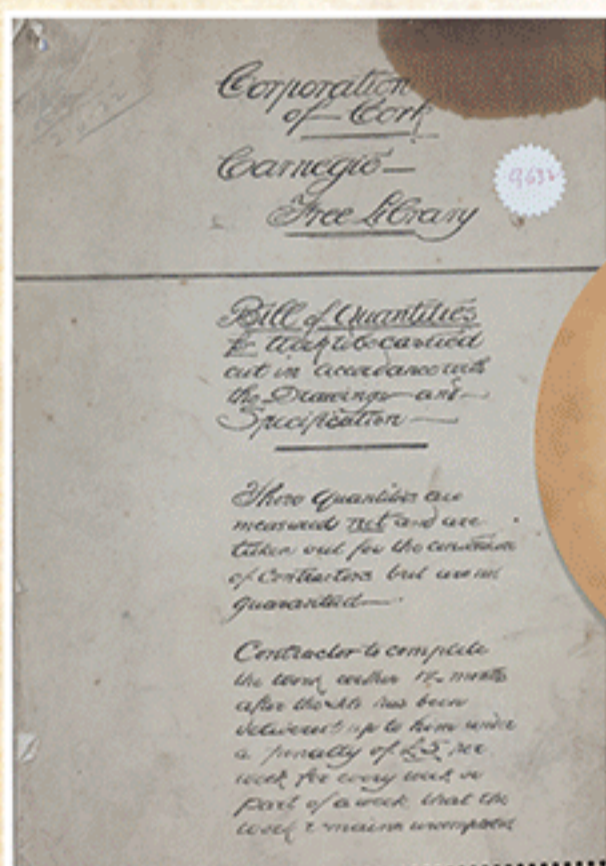 Corporation
of Cork
Carnegie
Free Library
9638
Bill of Quantities
of Work to be carried
out in accordance with
the Drawings and
Specification
These Quantities are
measured net and are
taken out for the convenience
of Contractors but are not
guaranteed
Contractor to complete
the work within months
after the site has been
delivered up to him under
a penalty of £5 per
week for every week or
part of a week that the
work remains uncompleted